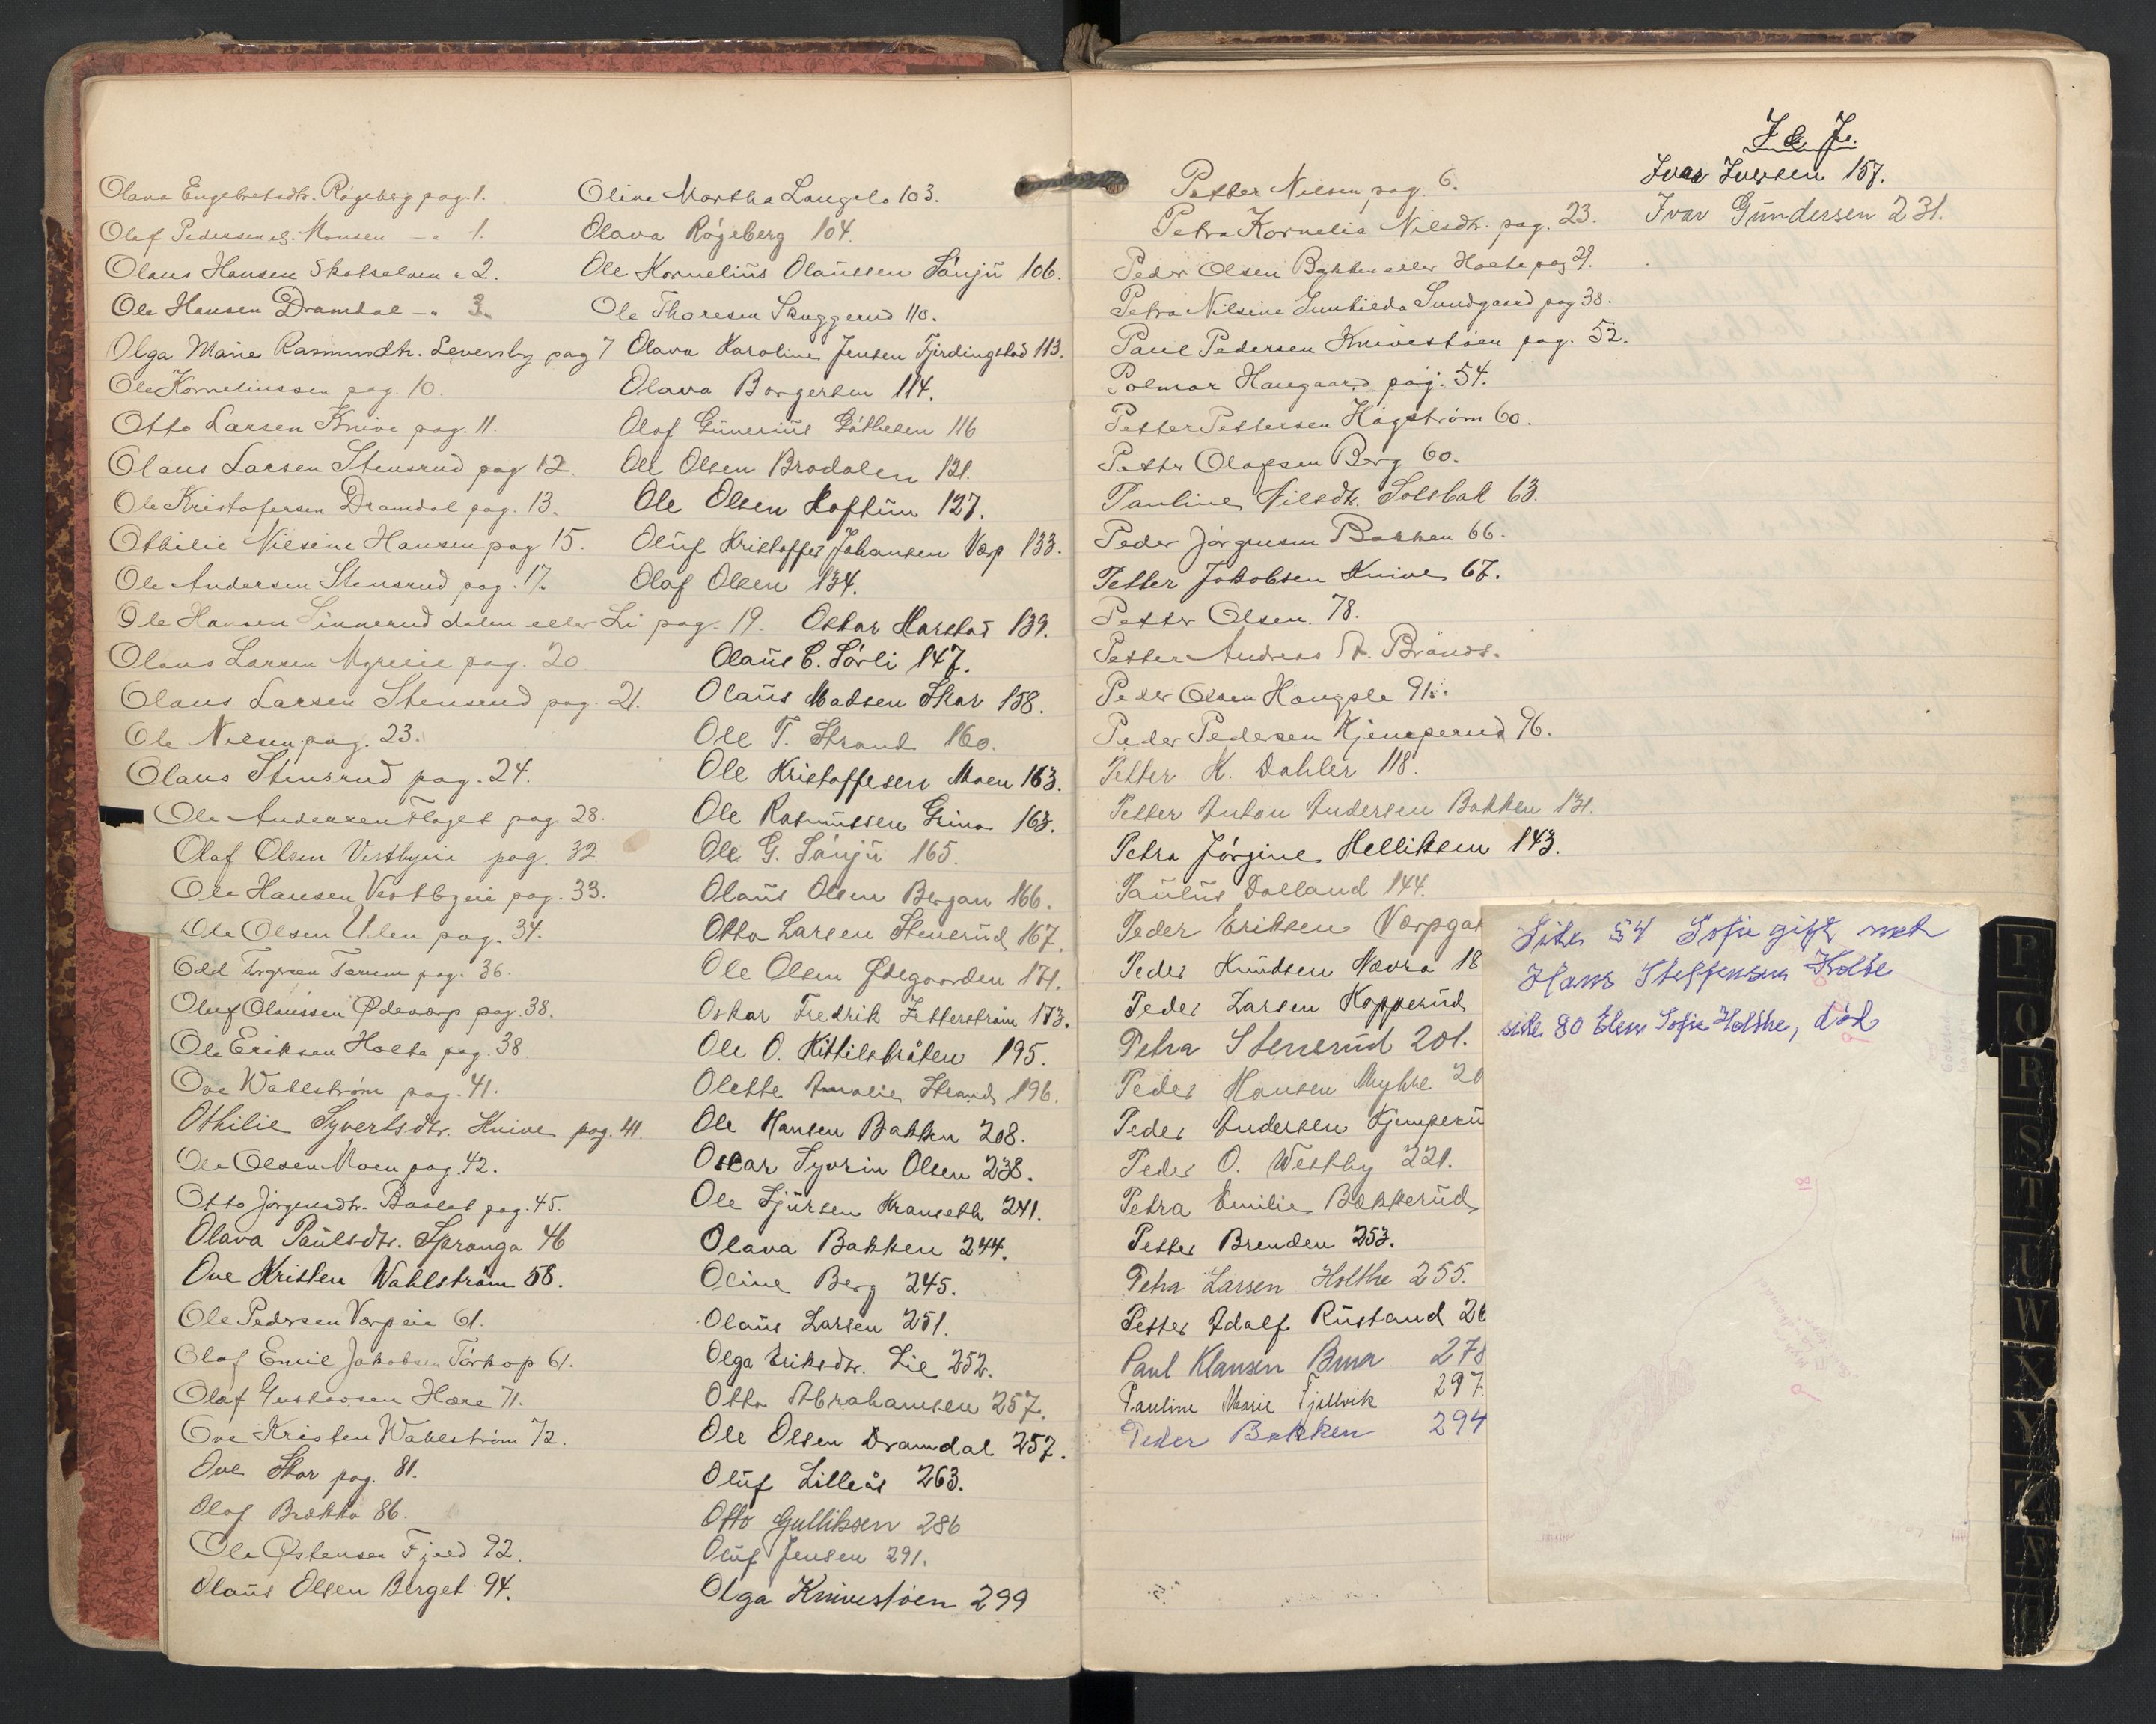 Olava Engebretsdtr. Røgeberg pag. 1.
Olaf Pedersen el. Monsen — „ 1.
Olaus Hansen Skotselven „ 2.
Ole Hansen Dramdal — „ 3.
Olga Marie Rasmusdtr. Levernby pag 7
Ole Korneliussen pag. 10.
Otto Larsen Knive pag. 11.
Olaus Larsen Stensrud pag 12.
Ole Kristofersen Dramdal pag. 13.
Othilie Nilsine Hansen pag 15.
Ole Andersen Stensrud pag. 17.
Ole Hansen Sinnerud dalen eller Li pag. 19.
Olaus Larsen Myreie pag. 20.
Olaus Larsen Stensrud pag. 21.
Ole Nilsen pag. 23.
Olaus Stensrud pag. 24.
Ole Anderssen Flaget pag. 28.
Olaf Olsen Vestbyeie pag. 32
Ole Hansen Vestbyeie pag. 33.
Ole Olsen Ulen pag. 34.
Odd Torgersen Tærum pag. 36.
Oluf Olaussen Ødevarp pag. 38.
Ole Eriksen Holte pag. 38
Ove Wahlstrøm pag. 41.
Othilie Syvertsdtr. Knive pag. 41.
Ole Olsen Moen pag. 42.
Otto Jørgensdtr. Baslat pag. 45.
Olava Paulsdtr. Spranga 46
Ove Kristen Wahlstrøm 58.
Ole Pedersen Varpeie 61.
Olaf Emil Jakobsen Tørkop 61.
Olaf Gustavsen Hære 71.
Ove Kristen Wahlstrøm 72.
Ove Skar pag. 81.
Olaf Brekka 86.
Ole Østensen Fjeld 92.
Olaus Olsen Berget 94.
Oline Martha Langelo 103.
Olava Røgeberg 104.
Ole Kornelius Olaussen Sånju 106.
Ole Thoresen Skuggerud 110.
Olava Karoline Jensen Fjerdingstad 113.
Olava Borgersen 114.
Olaf Gunerius Gåthesen 116
Ole Olsen Brodalen 121.
Ole Olsen Hoftun 127.
Oluf Kristoffer Johansen Varp 133.
Olaf Olsen 134.
Oskar Harstad 139.
Olaus C. Sørli 147.
Olaus Madsen Skar 158.
Ole T. Strand 160.
Ole Kristoffesen Moen 163.
Ole Rasmussen Grina 163.
Ole G. Sånju 165.
Olaus Olsen Berjan 166.
Otto Larsen Stensrud 167.
Ole Olsen Ødegaarden 171.
Oskar Fredrik Zetterstrøm 173.
Ole O. Kittilsbråten 195.
Olette Amalie Strand 196.
Ole Hansen Bakken 208.
Oscar Syvrin Olsen 238.
Ole Sjursen Kranseth 241.
Olava Bakken 244.
Oline Berg 245.
Olaus Larsen 251.
Olga Eriksdtr. Lie 252.
Otto Abrahamsen 257.
Ole Olsen Dramdal 257.
Oluf Lilleås 263.
Otto Gulliksen 286
Oluf Jensen 291.
Olga Knivestøen 299
Petter Nilsen pag. 6.
Petra Kornelia Nilsdtr. pag. 23.
Peder Olsen Bakken eller Holte pag 29.
Petra Nilsine Gunhilda Sundgaard pag 38.
Paul Pedersen Knivestøen pag. 52.
Polmar Haugaard pag. 54.
Petter Pettersen Hågstrøm 60.
Petter Olafsen Berg 60.
Pauline Nilsdtr. Solsbak 63.
Peder Jørgensen Bakken 66.
Petter Jakobsen Knive 67.
Petter Olsen. 78.
Petter Andreas Brånds.
Peder Olsen Haugsle 91.
Peder Pedersen Kjemperud 96.
Petter K. Dahler 118.
Petter Anton Andersen Bakken 131.
Petra Jørgine Helliksen 143.
Paulus Dolland 144.
Peder Eriksen Varpgat
Peder Knudsen Nævra 18
Peder Larsen Kopperud
Petra Stensrud 201.
Peder Hansen Myhre 20
Peder Andersen Kjemperu
Peder O. Westby 221.
Petra Emilie Bækkerud
Petter Brenden 253.
Petra Larsen Holthe 255.
Petter Adolf Rustand 26
Paul Klausen Brua 278
Pauline Marie Fjellvik 297.
Peder Bakken 294
I & J.
Ivar Iversen 157.
Ivar Gundersen 231.
Side 54 Sofie gift med
Hans Steffensen Holte
side 80 Elen Sofie Holthe, död
P
O
R
S
T
U
W
X
Y